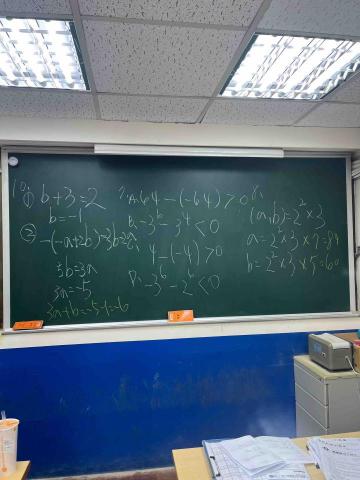 10. ① b+3=2
b=-1
② -(-a+2b)-3b=2a
-5b=3a
3a=-5
3a+b=-5-1=-6
7. A. 64-(-64)>0
B. -3⁶-3⁴<0
4-(-4)>0
D. -3⁶-2⁶<0
8.
(a,b)=2²×3
a=2²×3×7=84
b=2²×3×5=60